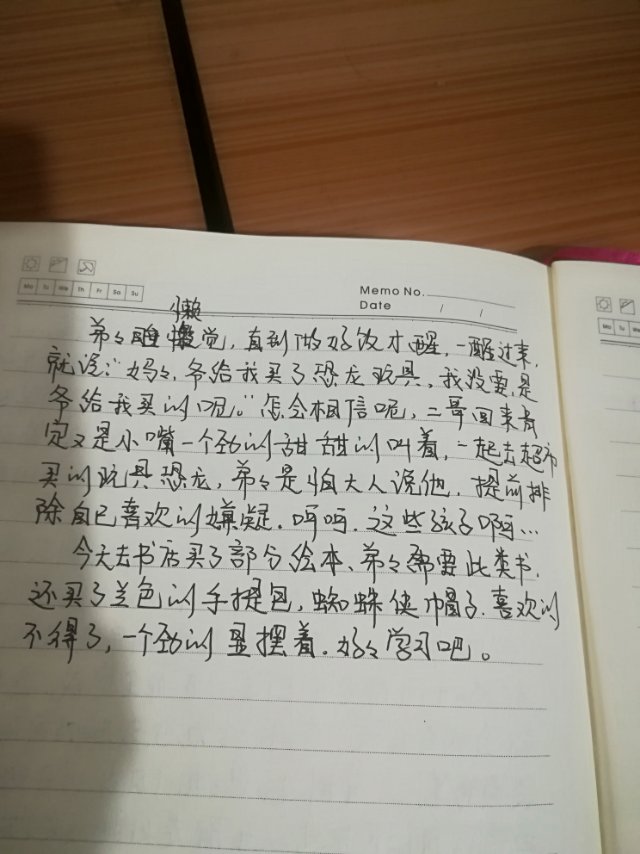 Memo No.
Mo Tu We Th Fr Sa Su
Date / /
懒
弟々睡懒觉，直到做好饭才醒，一醒过来，
就说："妈々，爷给我买了恐龙玩具，我没要，是
爷给我买的呢。"怎会相信呢，二哥回来肯
定又是小嘴一个劲的甜甜的叫着，一起去超市
买的玩具恐龙，弟々是怕大人说他，提前排
除自己喜欢的嫌疑，呵呵，这些孩子啊…
今天去书店买了部分绘本、弟々都要此类书，
还买了兰色的手提包，蜘蛛侠帽子，喜欢的
不得了，一个劲的显摆着，好々学习吧。